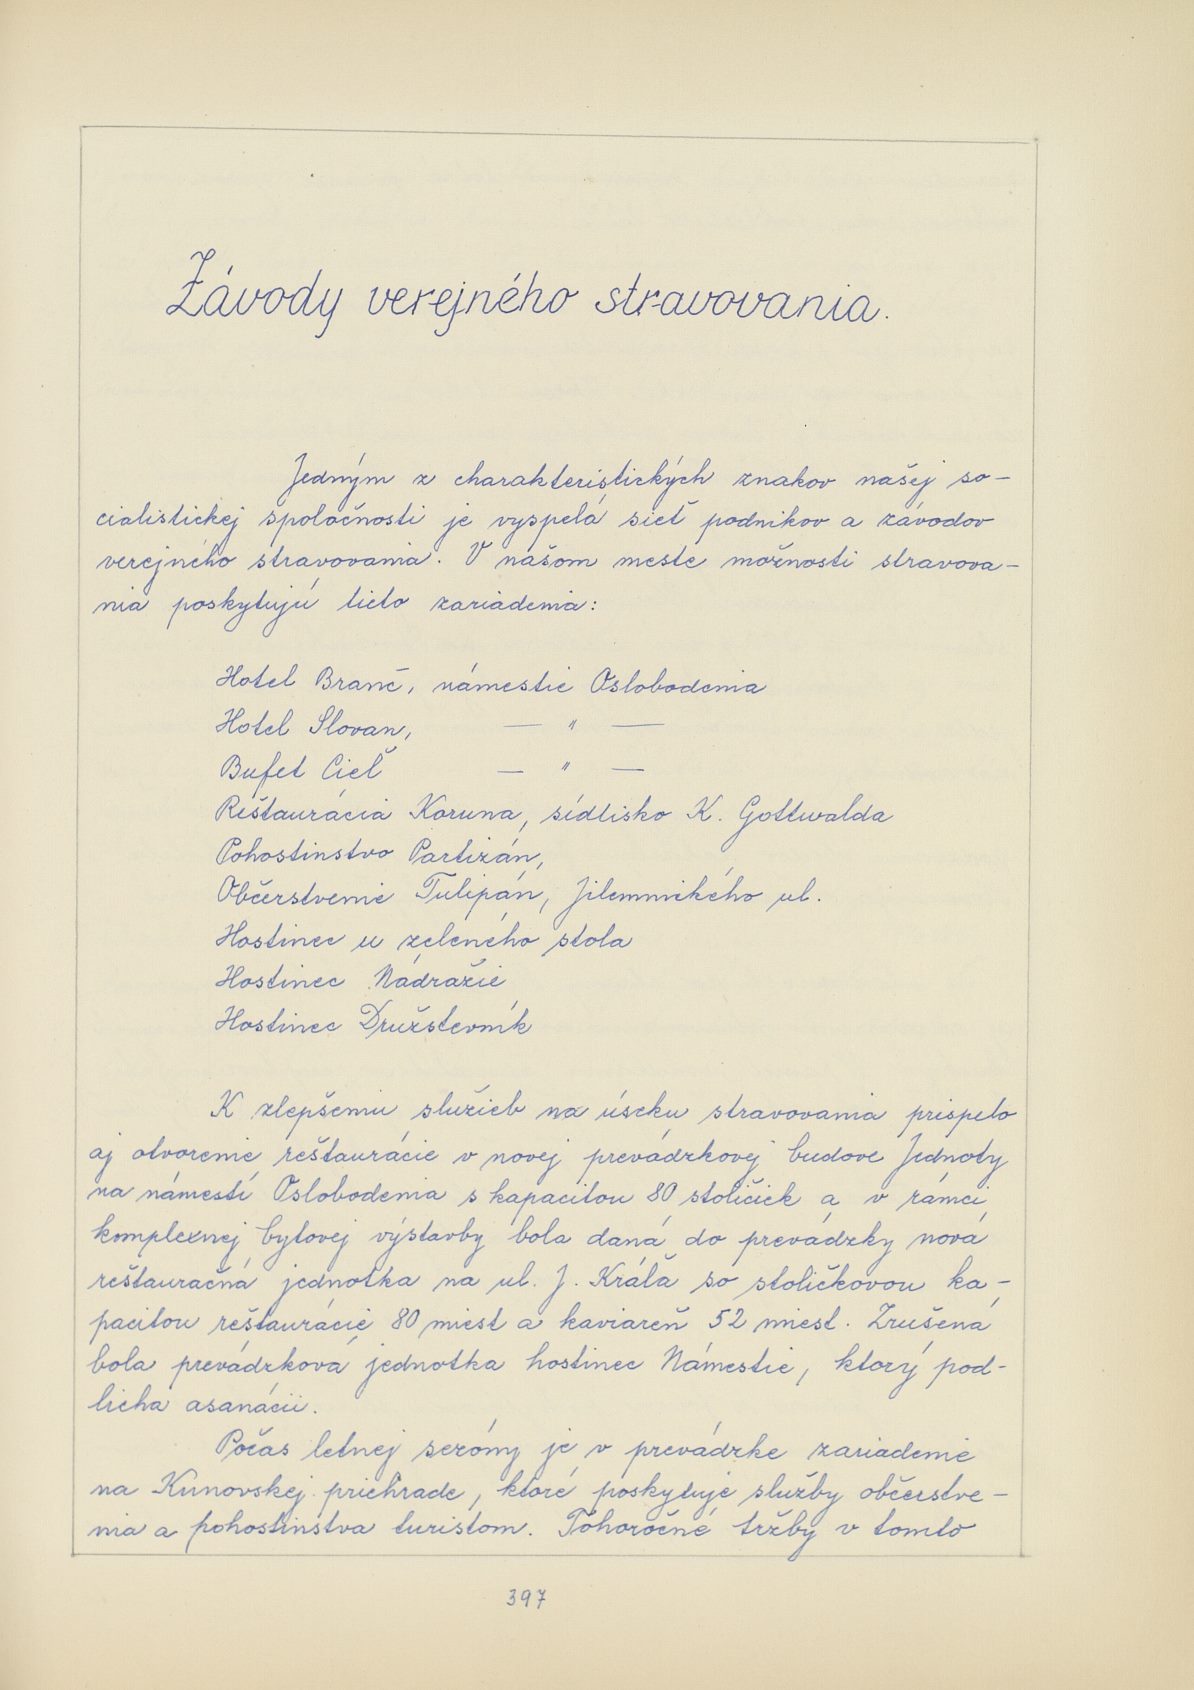 Závody verejného stravovania.
Jedným z charakteristických znakov našej so-
cialistickej spoločnosti je vyspelá sieť podnikov a závodov
verejného stravovania. V našom meste možnosti stravova-
nia poskytujú tieto zariadenia:
Hotel Branč, námestie Oslobodenia
Hotel Slovan, — " —
Bufet Cieľ — " —
Reštaurácia Koruna, sídlisko K. Gottwalda
Pohostinstvo Partizán,
Občerstvenie Tulipán, Jilemnického ul.
Hostinec u zeleného stola
Hostinec Nádražie
Hostinec Družstevník
K zlepšeniu služieb na úseku stravovania prispelo
aj otvorenie reštaurácie v novej prevádzkovej budove Jednoty
na námestí Oslobodenia s kapacitou 80 stoličiek a v rámci
komplexnej bytovej výstavby bola daná do prevádzky nová
reštauračná jednotka na ul. J. Kráľa so stoličkovou ka-
pacitou reštaurácie 80 miest a kaviareň 52 miest. Zrušená
bola prevádzková jednotka hostinec Námestie, ktorý pod-
licha asanácii.
Počas letnej sezóny je v prevádzke zariadenie
na Kunovskej priehrade, ktoré poskytuje služby občerstve-
nia a pohostinstva turistom. Tohoročné tržby v tomto
397